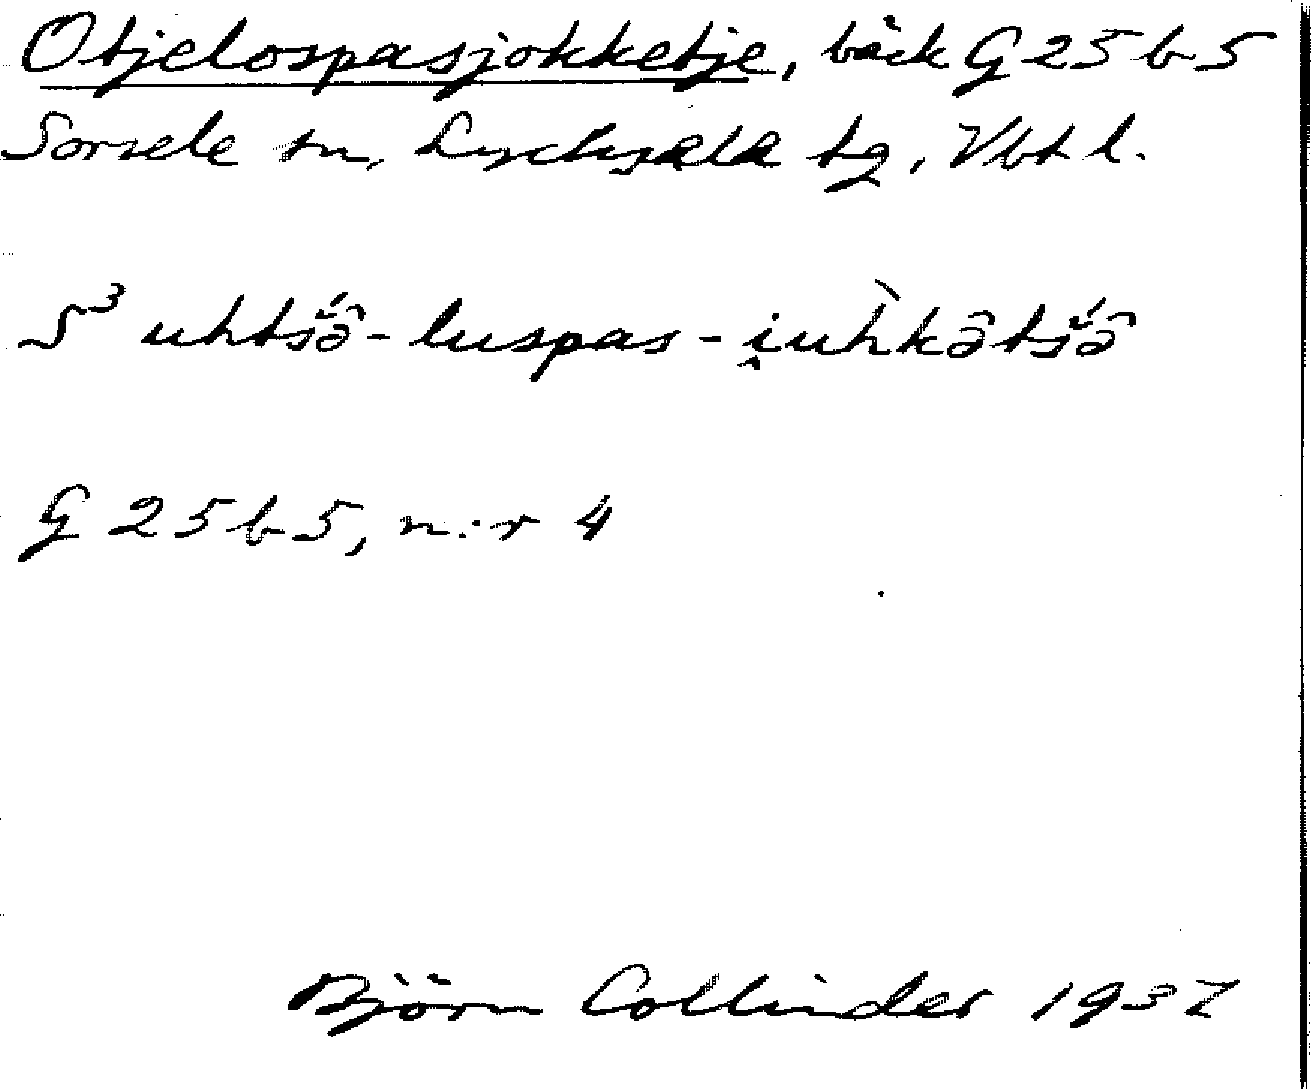 Otjelospasjokketje, bäck G 25 b 5
Sorsele sn, Lycksele tg, Vbt l.
S³ uhtš́ə̑̂-luspas-i̯uh̀kə̑̂tš́ə̑̂
G 25 b 5, n:r 4
Björn Collinder 1937